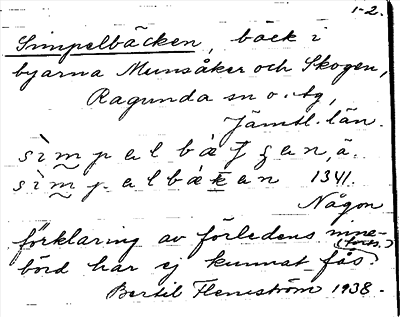 1-2.
Simpelbäcken, bäck i
byarna Munsåker och Skogen,
Ragunda sn o. tg,
Jämtl. län.
sìmpelbáʃʒen, ä.
sìmpelbáken 1341.
Någon
förklaring av förledens inne-
börd har ej kunnat fås.
(forts.)
Bertil Flemström 1938.